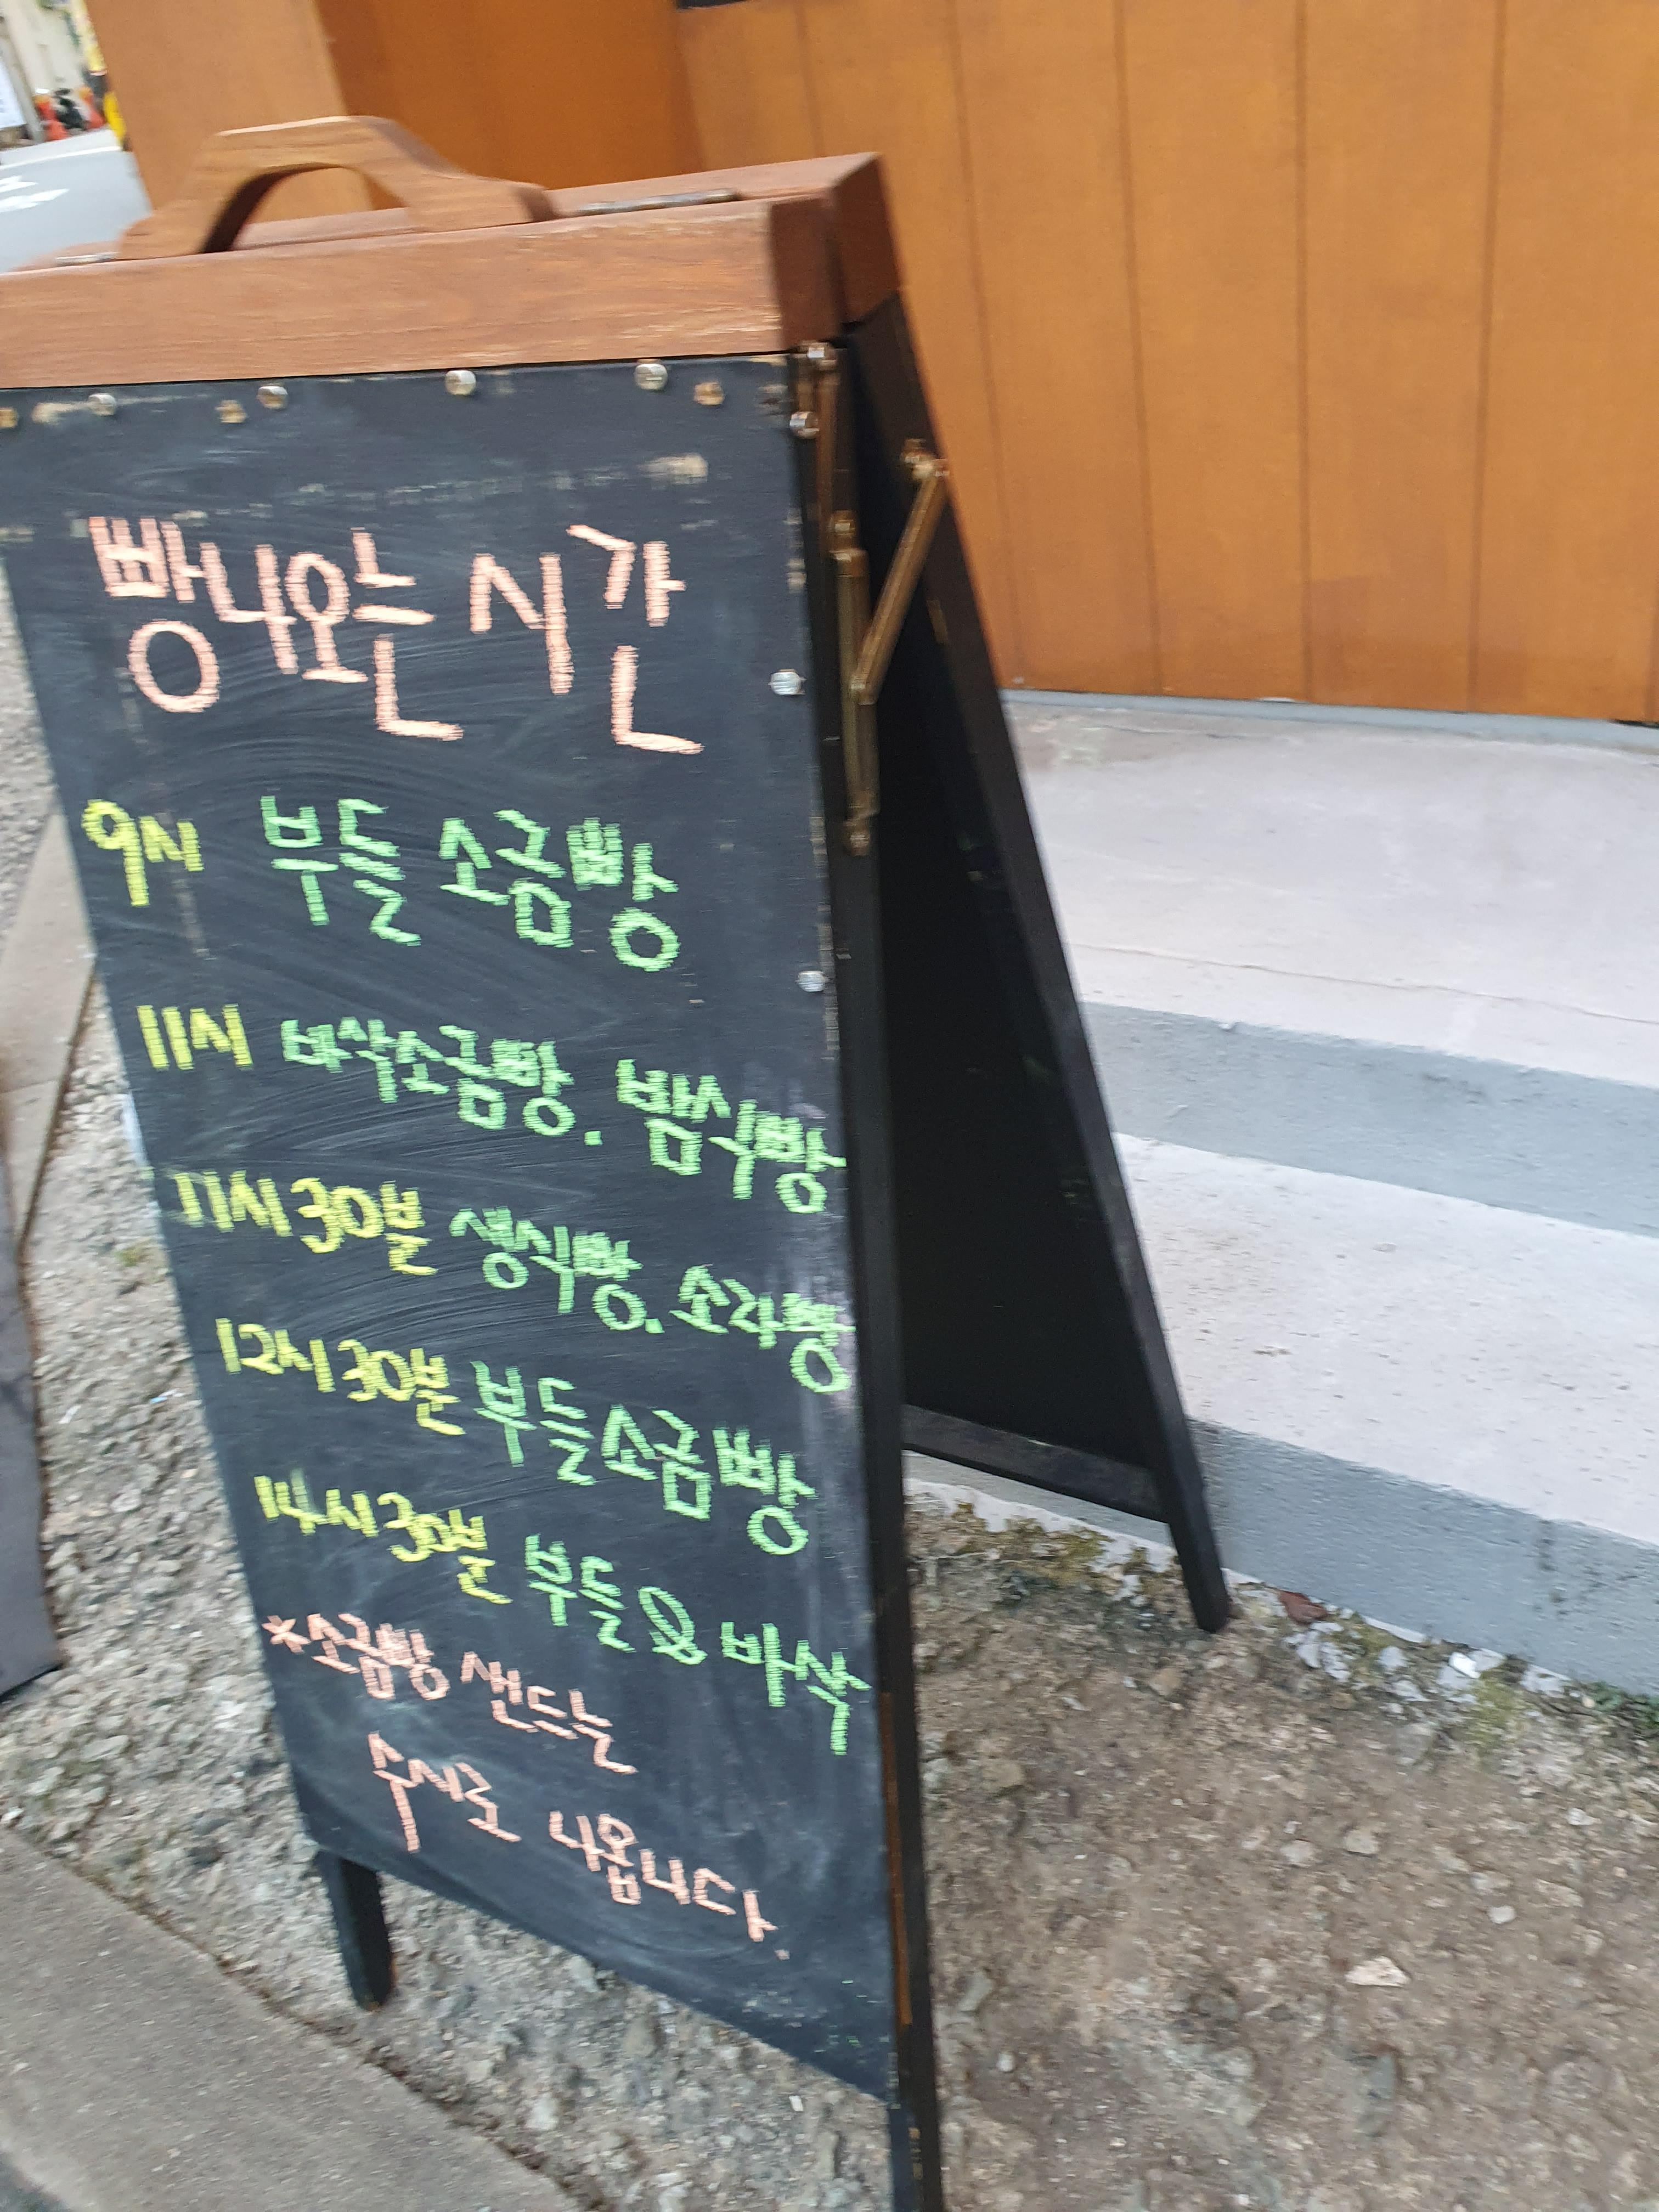 빵나오는 시간
9시 부들 소금빵
11시 바삭소금빵. 밤식빵
11시30분 생식빵. 소라빵
12시30분 부들소금빵
14시30분 부들 & 바삭
*소금빵 샌드는
수시로 나옵니다.